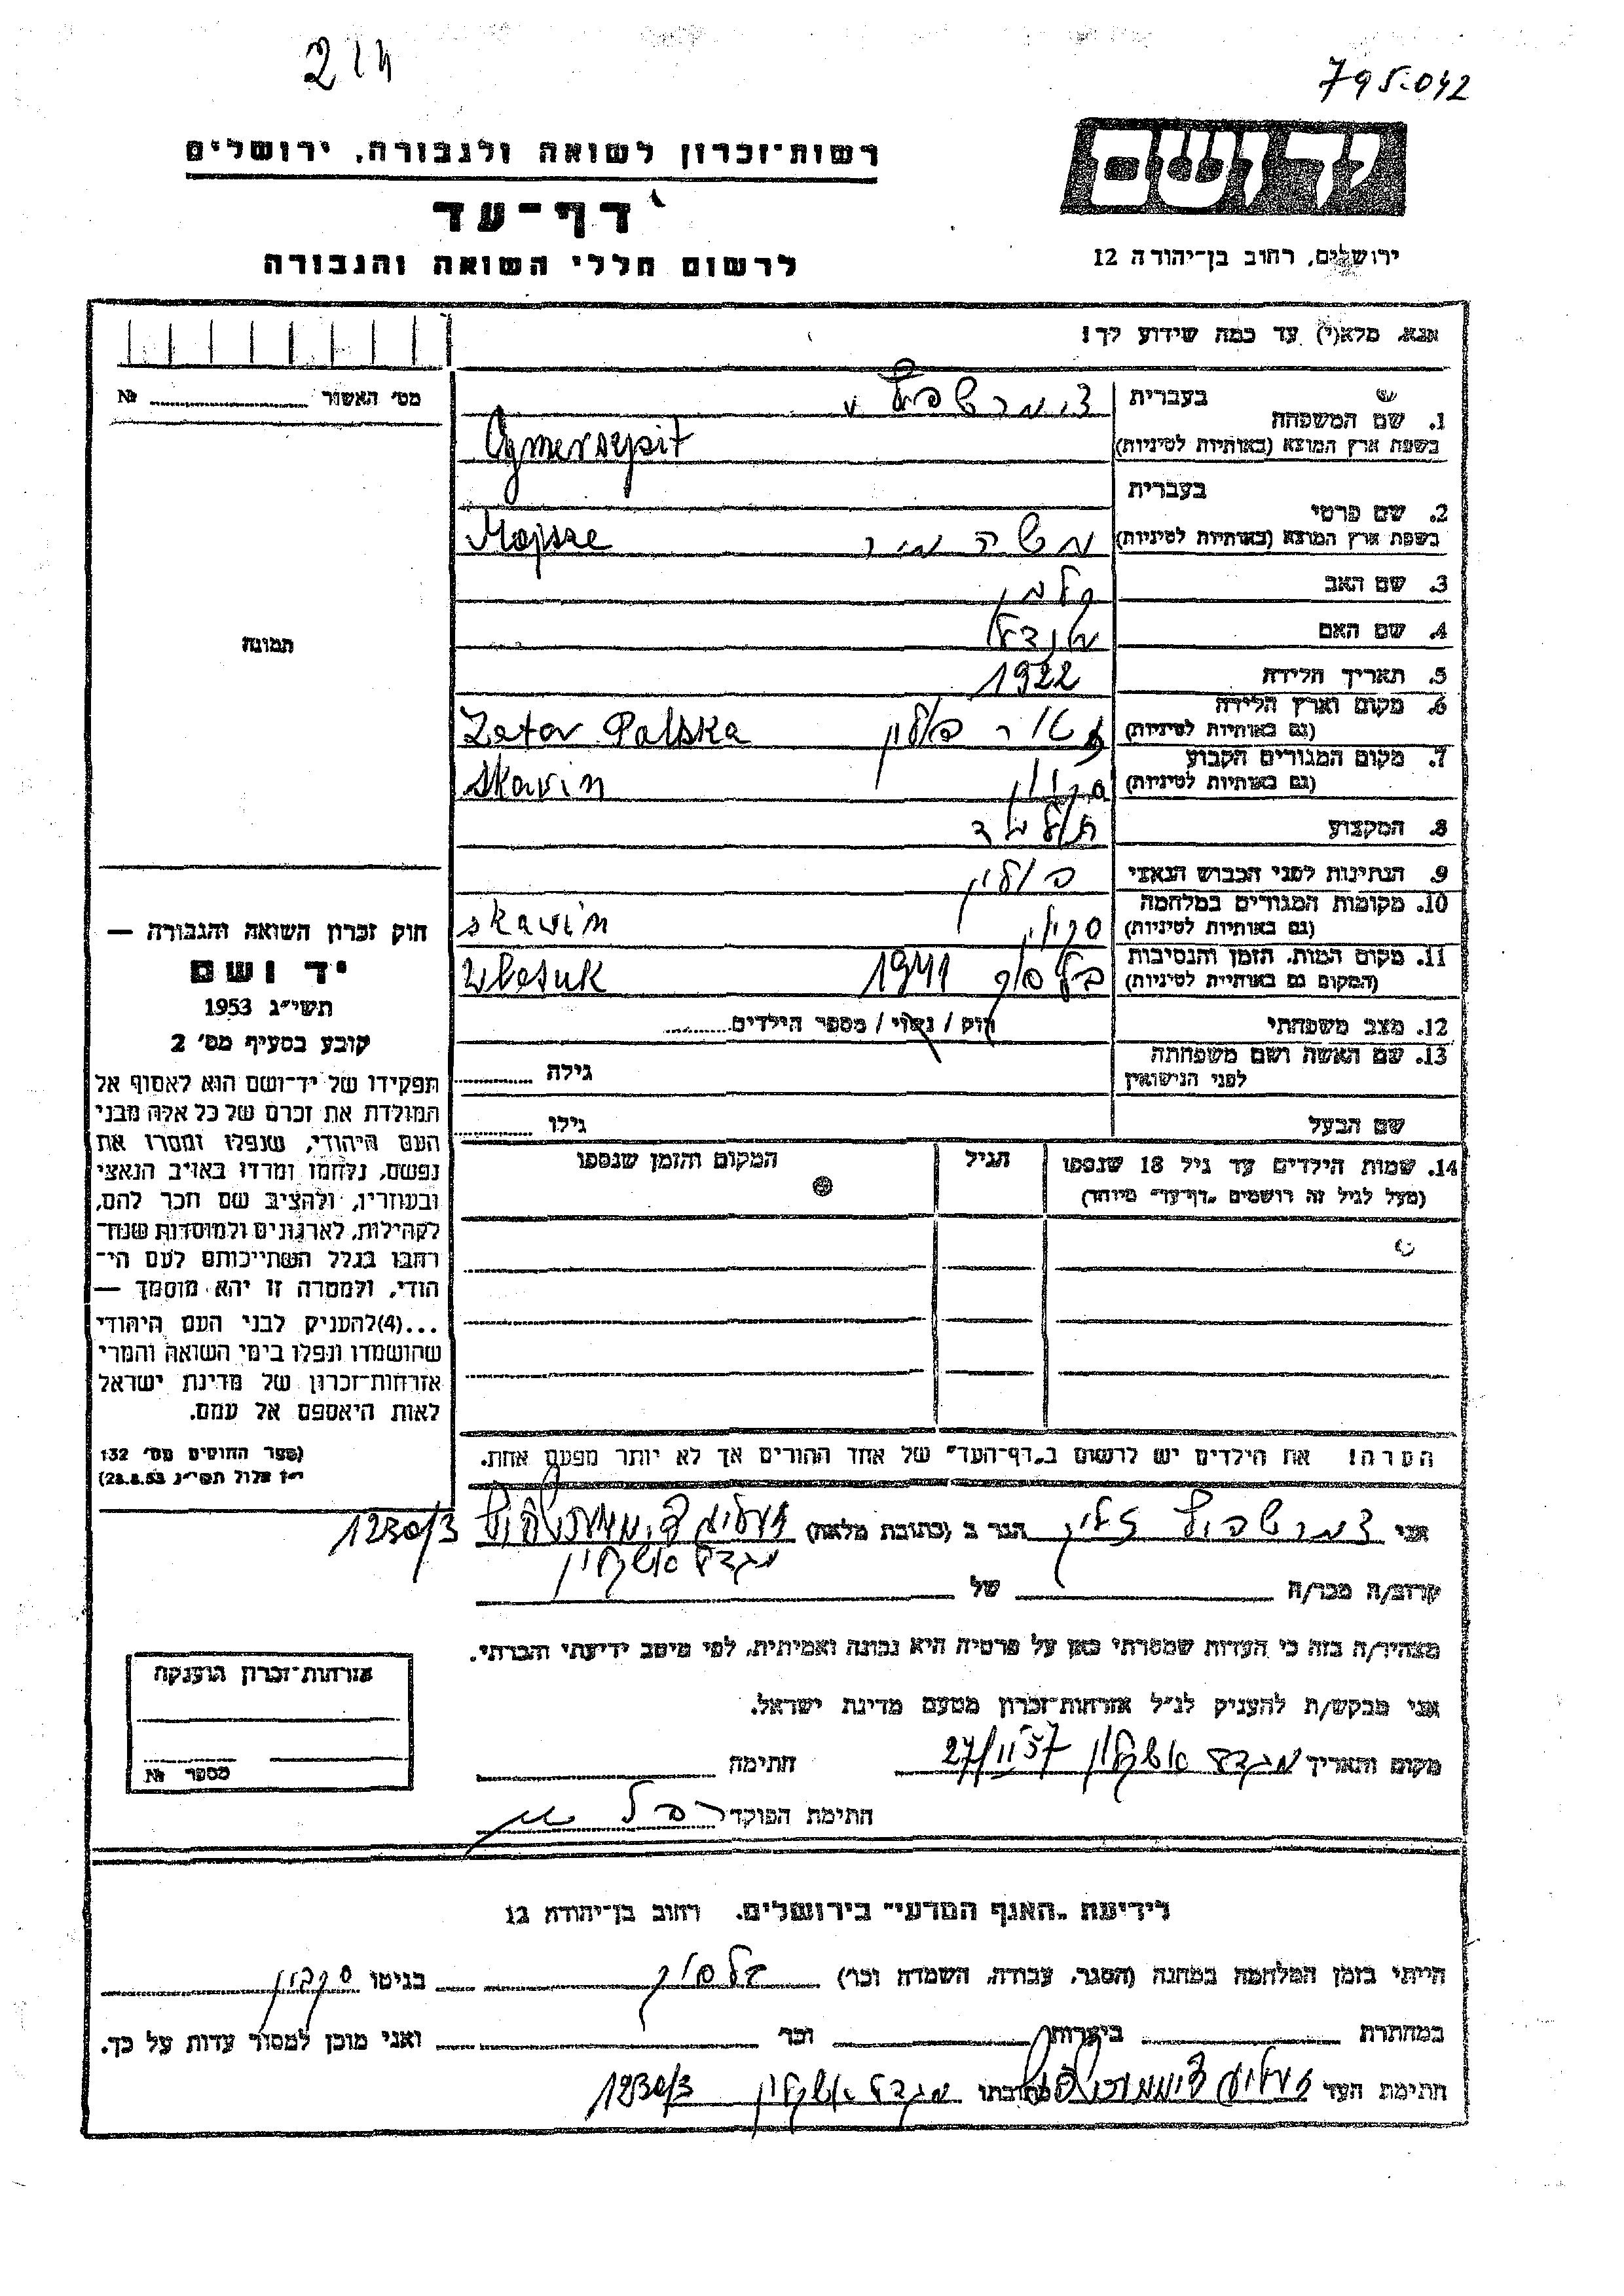 214
795.042
רשות־זכרון לשואה ולגבורה, ירושלים
דף-עד
לרשום חללי השואה והגבורה
ידושם
ירושלים, רחוב בן־יהודה 12
אנא, מלא(י) עד כמה שידוע לך!
מס' האשור № ........
1. שם המשפחה
בעברית
בשפת ארץ המוצא (באותיות לטיניות)
תמונה
2. שם פרטי
בעברית
בשפת ארץ המוצא (באותיות לטיניות) משה Mojsze
3. שם האב קלמן
4. שם האם
5. תאריך הלידה 1922
6. מקום וארץ הלידה
(גם באותיות לטיניות) פולין Zator Polska
7. מקום המגורים הקבוע
(גם באותיות לטיניות) Skavin
8. המקצוע תלמיד
9. הנתינות לפני הכבוש הנאצי פולין
10. מקומות המגורים במלחמה
(גם באותיות לטיניות) skavin
11. מקום המות, הזמן והנסיבות
(המקום גם באותיות לטיניות) 1941
12. מצב משפחתי רווק / נשוי / מספר הילדים........
13. שם האשה ושם משפחתה
לפני הנישואין
גילה ........
שם הבעל גילו ........
14. שמות הילדים עד גיל 18 שנספו
(מעל לגיל זה רושמים „דף־עד" מיוחד)
הגיל
המקום והזמן שנספו
חוק זכרון השואה והגבורה —
יד ושם
תשי״ג 1953
קובע בסעיף מס' 2
תפקידו של יד־ושם הוא לאסוף אל
המולדת את זכרם של כל אלה מבני
העם היהודי, שנפלו ומסרו את
נפשם, נלחמו ומרדו באויב הנאצי
ובעוזריו, ולהציב שם וזכר להם,
לקהילות, לארגונים ולמוסדות שנח־
רבו בגלל השתייכותם לעם הי־
הודי, ולמטרה זו יהא מוסמך —
...(4)להעניק לבני העם היהודי
שהושמדו ונפלו בימי השואה והמרי
אזרחות־זכרון של מדינת ישראל
לאות היאספם אל עמם.
(ספר החוקים מס' 132
י״ז אלול תשי״ג 28.8.53)
הערה! את הילדים יש לרשום ב„דף־העד" של אחד ההורים אך לא יותר מפעם אחת.
אני הגר ב (כתובת מלאה) 1230/3
מגדל אשקלון
קרוב/ה מכר/ה של
מצהיר/ה בזה כי העדות שמסרתי כאן על פרטיה היא נכונה ואמיתית, לפי מיטב ידיעתי והכרתי.
אני מבקש/ת להעניק לנ״ל אזרחות־זכרון מטעם מדינת ישראל.
מקום ותאריך מגדל אשקלון 27/II 57 חתימה
חתימת הפוקד
אזרחות־זכרון הוענקה
מספר №
לידיעת „האגף המדעי" בירושלים, רחוב בן־יהודה 12
הייתי בזמן המלחמה במחנה (הסגר, עבודה, השמדה וכו') בגיטו
במחתרת ביערות וכו' ואני מוכן למסור עדות על כך.
חתימת העד כתובתו מגדל אשקלון 1230/3